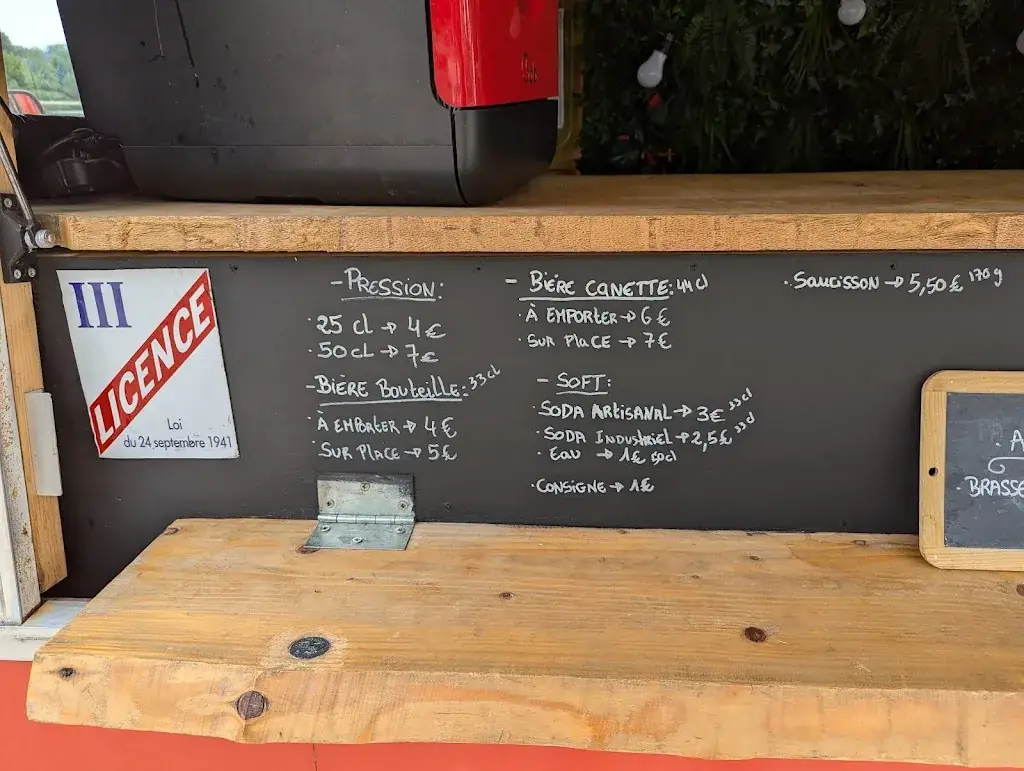 III
LICENCE
Loi
du 24 septembre 1941
- PRESSION:
· 25 cl → 4€
· 50 cL → 7€
- BIÈRE BOUTEILLE: 33cl
· À EMPORTER → 4€
· SUR PLACE → 5€
- BIÈRE CANETTE: 44cl
· À EMPORTER → 6€
· SUR PLACE → 7€
- SOFT:
· SODA ARTISANAL → 3€ 33cl
· SODA INDUSTRIEL → 2,5€ 33cl
· EAU → 1€ 50cl
· CONSIGNE → 1€
· SAUCISSON → 5,50€ 170g
· A
BRASSE